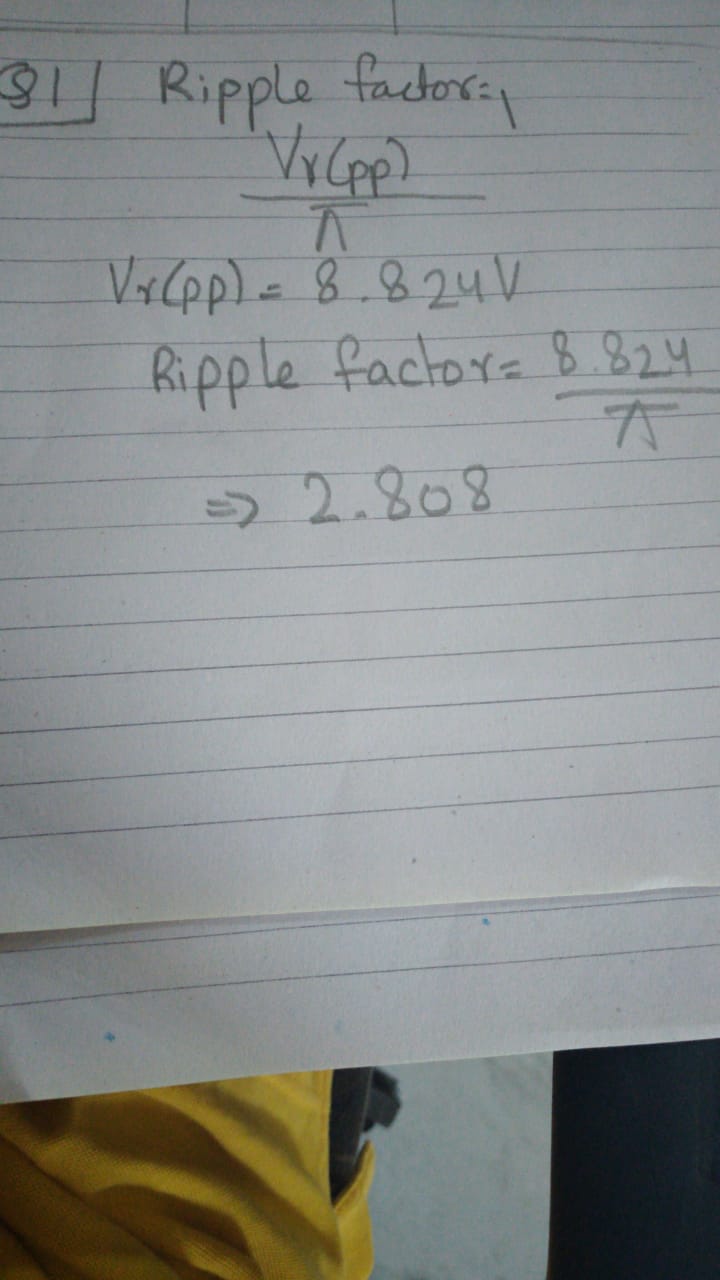 Q1 Ripple factor=,
Vr(pp)
π
Vr(pp) = 8.824V
Ripple factor= 8.824
π
=> 2.808